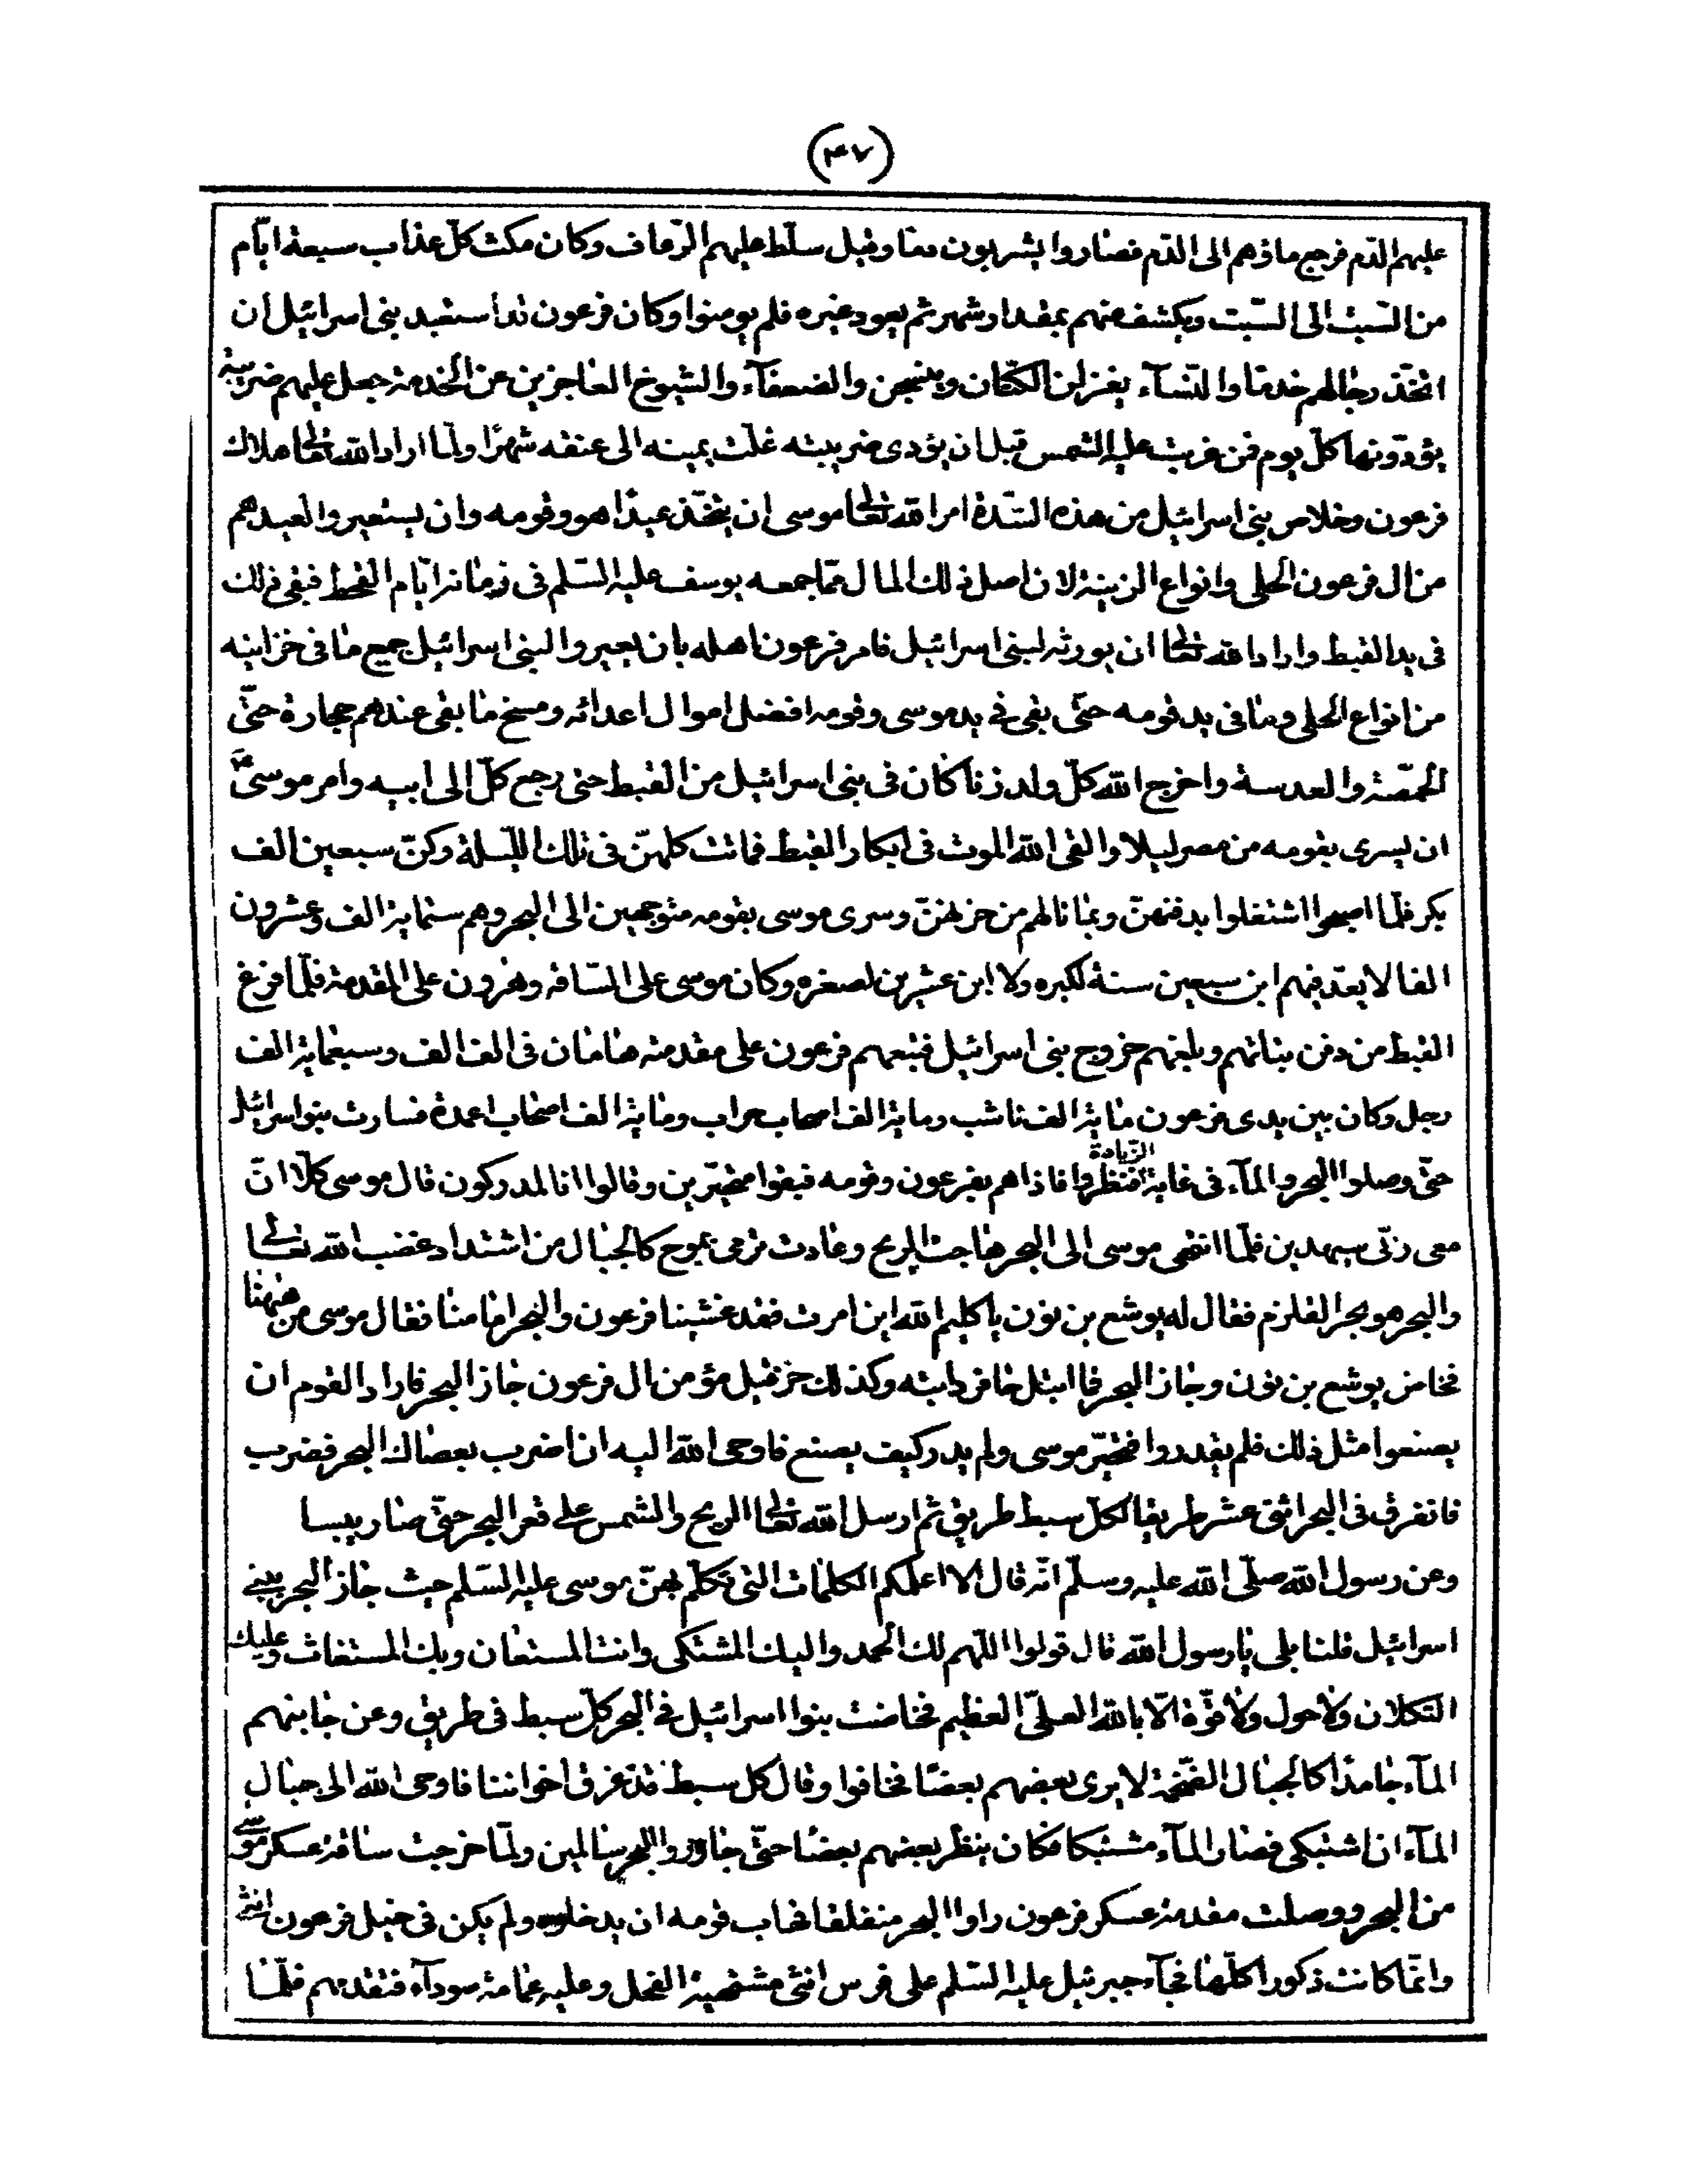 (٤٧)
عليهم الدّم فرجع ماؤهم الى الدّم فصاروا يشربون دما وقيل سلّط عليهم الرّعاف وكان مكث كلّ عذاب سبعة ايّام
من السّبت الى السّبت ويكشف عنهم بمقدار شهر ثم يعود غيره فلم يومنوا وكان فرعون قد استعبد بنى اسرائيل ان
اتّخذ رجالهم خدما والنّساء يغزلن الكتّان وينسجن والضعفآء والشيوخ العاجزين عن الخدمة جعل عليهم ضريبة
يؤدّونها كلّ يوم فمن غربت عليه الشمس قبل ان يؤدى ضريبته غلّت يمينه الى عنقه شهرًا ولمّا اراد الله تعالى هلاك
فرعون وخلاص بنى اسرائيل من هذه الشّدة امر الله تعالى موسى ان يتخذ عيدًا هو وقومه وان يستعيروا لعيدهم
من ال فرعون الحلى وانواع الزينة لان اصل ذلك المال ممّا جمعه يوسف عليه السّلم فى زمانه ايّام القحط فبقى ذلك
فى يد القبط واراد الله تعالى ان يورثه لبنى اسرائيل فامر فرعون اهله بان يعيروا لبنى اسرائيل جميع ما فى خزاينه
من انواع الحلى وما فى يد قومه حتّى بقى فى يد موسى وقومه افضل اموال اعدائه ومسخ ما بقى عندهم حجارة حتّى
الحمّصة والعدسة واخرج الله كلّ ولد زنا كان فى بنى اسرائيل من القبط حتى رجع كلّ الى ابيه وامر موسىٰ ع‍م
ان يسرى بقومه من مصر ليلا والقى الله الموت فى ابكار القبط فماتت كلهنّ فى تلك اللّيلة وكنّ سبعين الف
بكر فلمّا اصبحوا اشتغلوا بدفنهنّ وبما نالهم من حزنهنّ وسرى موسى بقومه متوجهين الى البحر وهم ستماية الف وعشرون
الفا لا يعدّ فيهم ابن سبعين سنة لكبره ولا ابن عشرين لصغره وكان موسى على السّاقة وهرون على المقدمة فلمّا فرغ
القبط من دفن بناتهم وبلغهم خروج بنى اسرائيل فتبعهم فرعون على مقدمته هامان فى الف الف وسبعماية الف
رجل وكان بين يدى فرعون ماية الف ناشب وماية الف اصحاب حراب وماية الف اصحاب اعمدة فسارت بنو اسرائيل
حتّى وصلوا البحر والمآء فى غاية الزّيادة فنظروا فاذا هم بفرعون وقومه فبقوا متحيّرين وقالوا انا لمدركون قال موسى كلّا انّ
معى ربّى سيهدين فلمّا انتهى موسى الى البحر هاجت الريح وعادت ترمى بموج كالجبال من اشتداد غضب الله تعالى
والبحر هو بحر القلزم فقال له يوشع بن نون يا كليم الله اين امرت فقد غشينا فرعون والبحر امامنا فقال موسى من هيهنا
فخاض يوشع بن نون وجاز البحر فما ابتل حافر دابته وكذلك حزقيل مؤمن ال فرعون جاز البحر فاراد القوم ان
يصنعوا مثل ذلك فلم يقدروا فتحيّر موسى ولم يدر كيف يصنع فاوحى الله اليه ان اضرب بعصاك البحر فضرب
فانفرق فى البحر اثنى عشر طريقا لكل سبط طريق ثم ارسل الله تعالى الريح والشمس على قعر البحر حتّى صار يبسا
وعن رسول الله صلّى الله عليه وسلّم انّه قال الا اعلّمكم الكلمات التى تكلّم بهنّ موسى عليه السّلم حيث جاز البحر ببنى
اسرائيل قلنا بلى يا رسول الله قال قولوا اللّهم لك الحمد واليك المشتكى وانت المستعان وبك المستغاث وعليك
التكلان ولا حول ولا قوّة الّا بالله العلىّ العظيم فخاضت بنوا اسرائيل فى البحر كلّ سبط فى طريق وعن جانبهم
المآء جامدًا كالجبال الضّخمة لا يرى بعضهم بعضًا فخافوا وقال كل سبط قد غرق اخواننا فاوحى الله الى جبال
المآء ان اشتبكى فصار المآء مشتبكا فكان ينظر بعضهم بعضًا حتّى جاوزوا البحر سالمين ولمّا خرجت ساقة عسكر موسى
من البحر ووصلت مقدمة عسكر فرعون راوا البحر منفلقا فهاب قومه ان يدخلوه ولم يكن فى خيل فرعون انثى
وانّما كانت ذكورا كلّها فجآء جبرئيل عليه السّلم على فرس انثى مشتهية الفحل وعليه عمامة سودآء فتقدمهم فلمّا